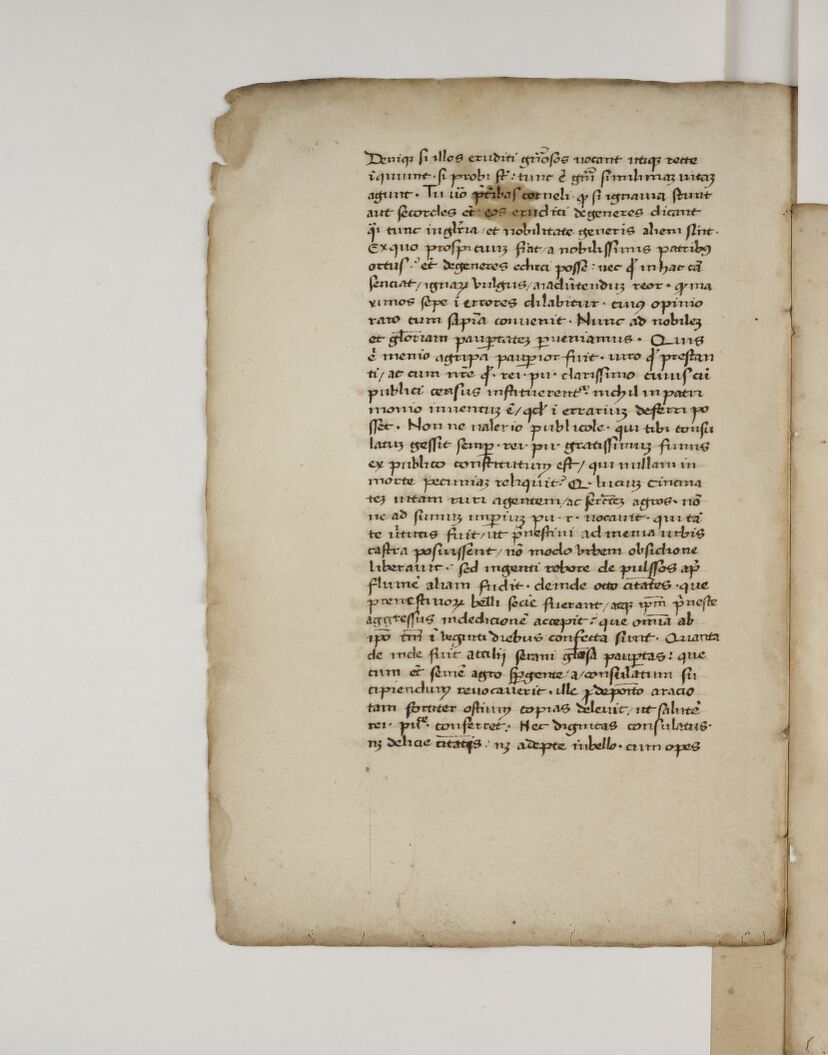 Deniqꝫ si illos eruditi gn̄osos uocant utiqꝫ recte
si probi st̄ : tunc ē similimaꝫ uitaꝫ
agunt · Tu uō corneli · qͥ si ignauia sunt
aut secordes et eos eruditi degeneres dicant
qͥ tunc inglīa et nobilitate generis alieni sint ·
Ex quo prospicuuꝫ fiat / a nobilissimis patribꝰ
ortus : et degeneres posse : nec qͥ in hac cā
senciat / ignaꝝ vulgus / aīaduͥtenduꝫ reor · qͥ ma
ximos sepe ī errores dilabitur · cuiꝰ opinio
raro cum sapīa conuenit · Nunc ad nobileꝫ
et gloriam paupertateꝫ perueniamus · Quis
ē menio agripa pauperior fuit · uiro qͥ prestan
ti / ac cum nr̄e qͥ · rei · pu · clarissimo cuius cū
publici census instituerent nichil in patri
monio inuentuꝫ ē / qd ī errariuꝫ deferri po
sset · Non ne ualerio publicole · qui tibi consu
latuꝫ gessit semper · rei · pu · gratissimuꝫ funus
ex publico constitutum est / qui nullam in
morte pecuniaꝫ reliquit ? Q · luciuꝫ cincina
teꝫ uitam ruri agentem / ac agros · nō
ne ad summuꝫ imperiuꝫ pu · r · uocauit · qui tā
te uirtutis fuit / ut prenestini ad menia urbis
castra posuissent / nō modo vrbem obsidione
liberauit : sed ingenti robore depulssos apd
flumē aliam fudit · deinde octo citates · que
prenestinoꝝ belli socie fuerant / atqꝫ ipm̄ preneste
aggressus indedicionē accepit : que omnia ab
ipō tm̄ ī uiginti diebus confecta sunt · Quanta
de inde fuit attilij serani gl̄osa paupertas : que
cum et semē agro spergente / a / consulatum su
cipiendum reuocauerit · ille aracio
tam fortiter ostium copias deleuit / ut salutē
rei · pu · conferret : Nec dignitas consulatus ·
nꝫ delicie citatis : nꝫ adepte inbello · cum opes